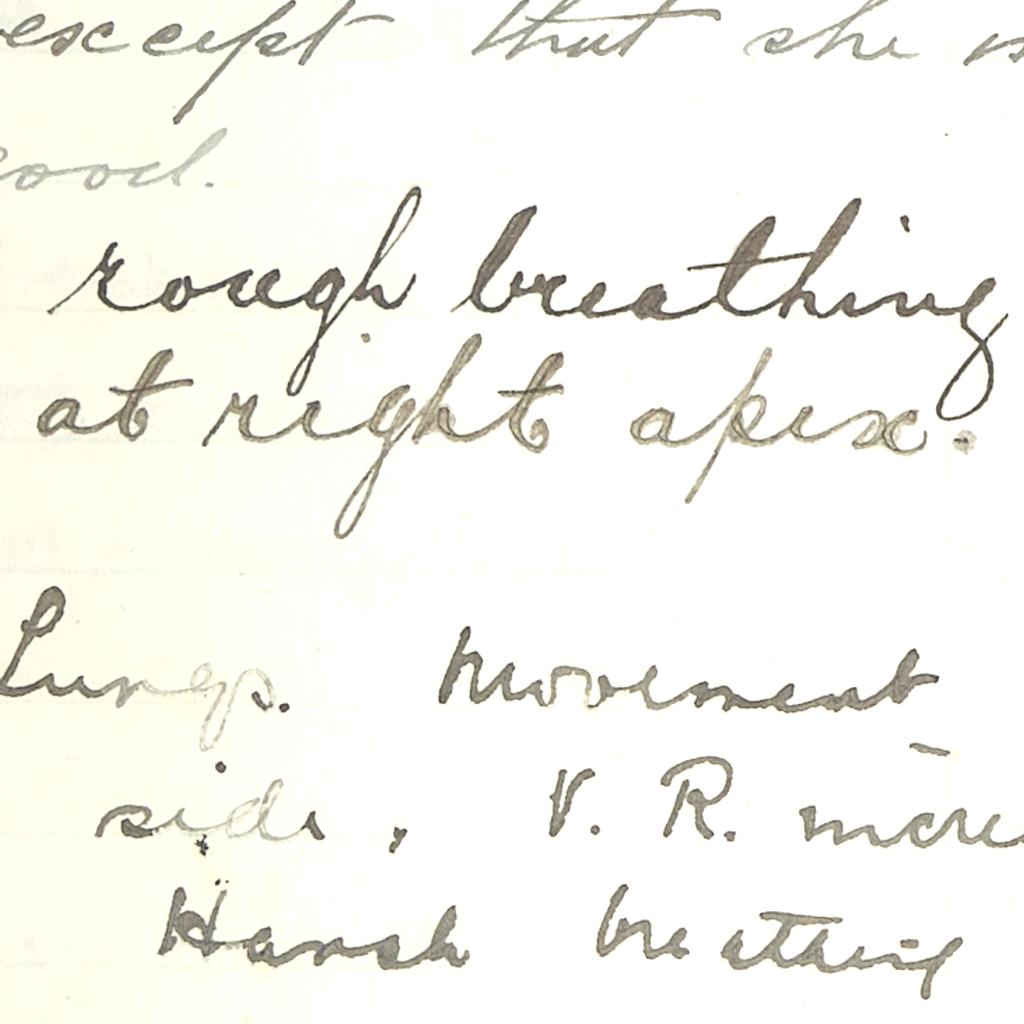 except that she
ood.
rough breathing
at right apex.
Lungs. Movement
side, V. R. incre
Harsh breathing